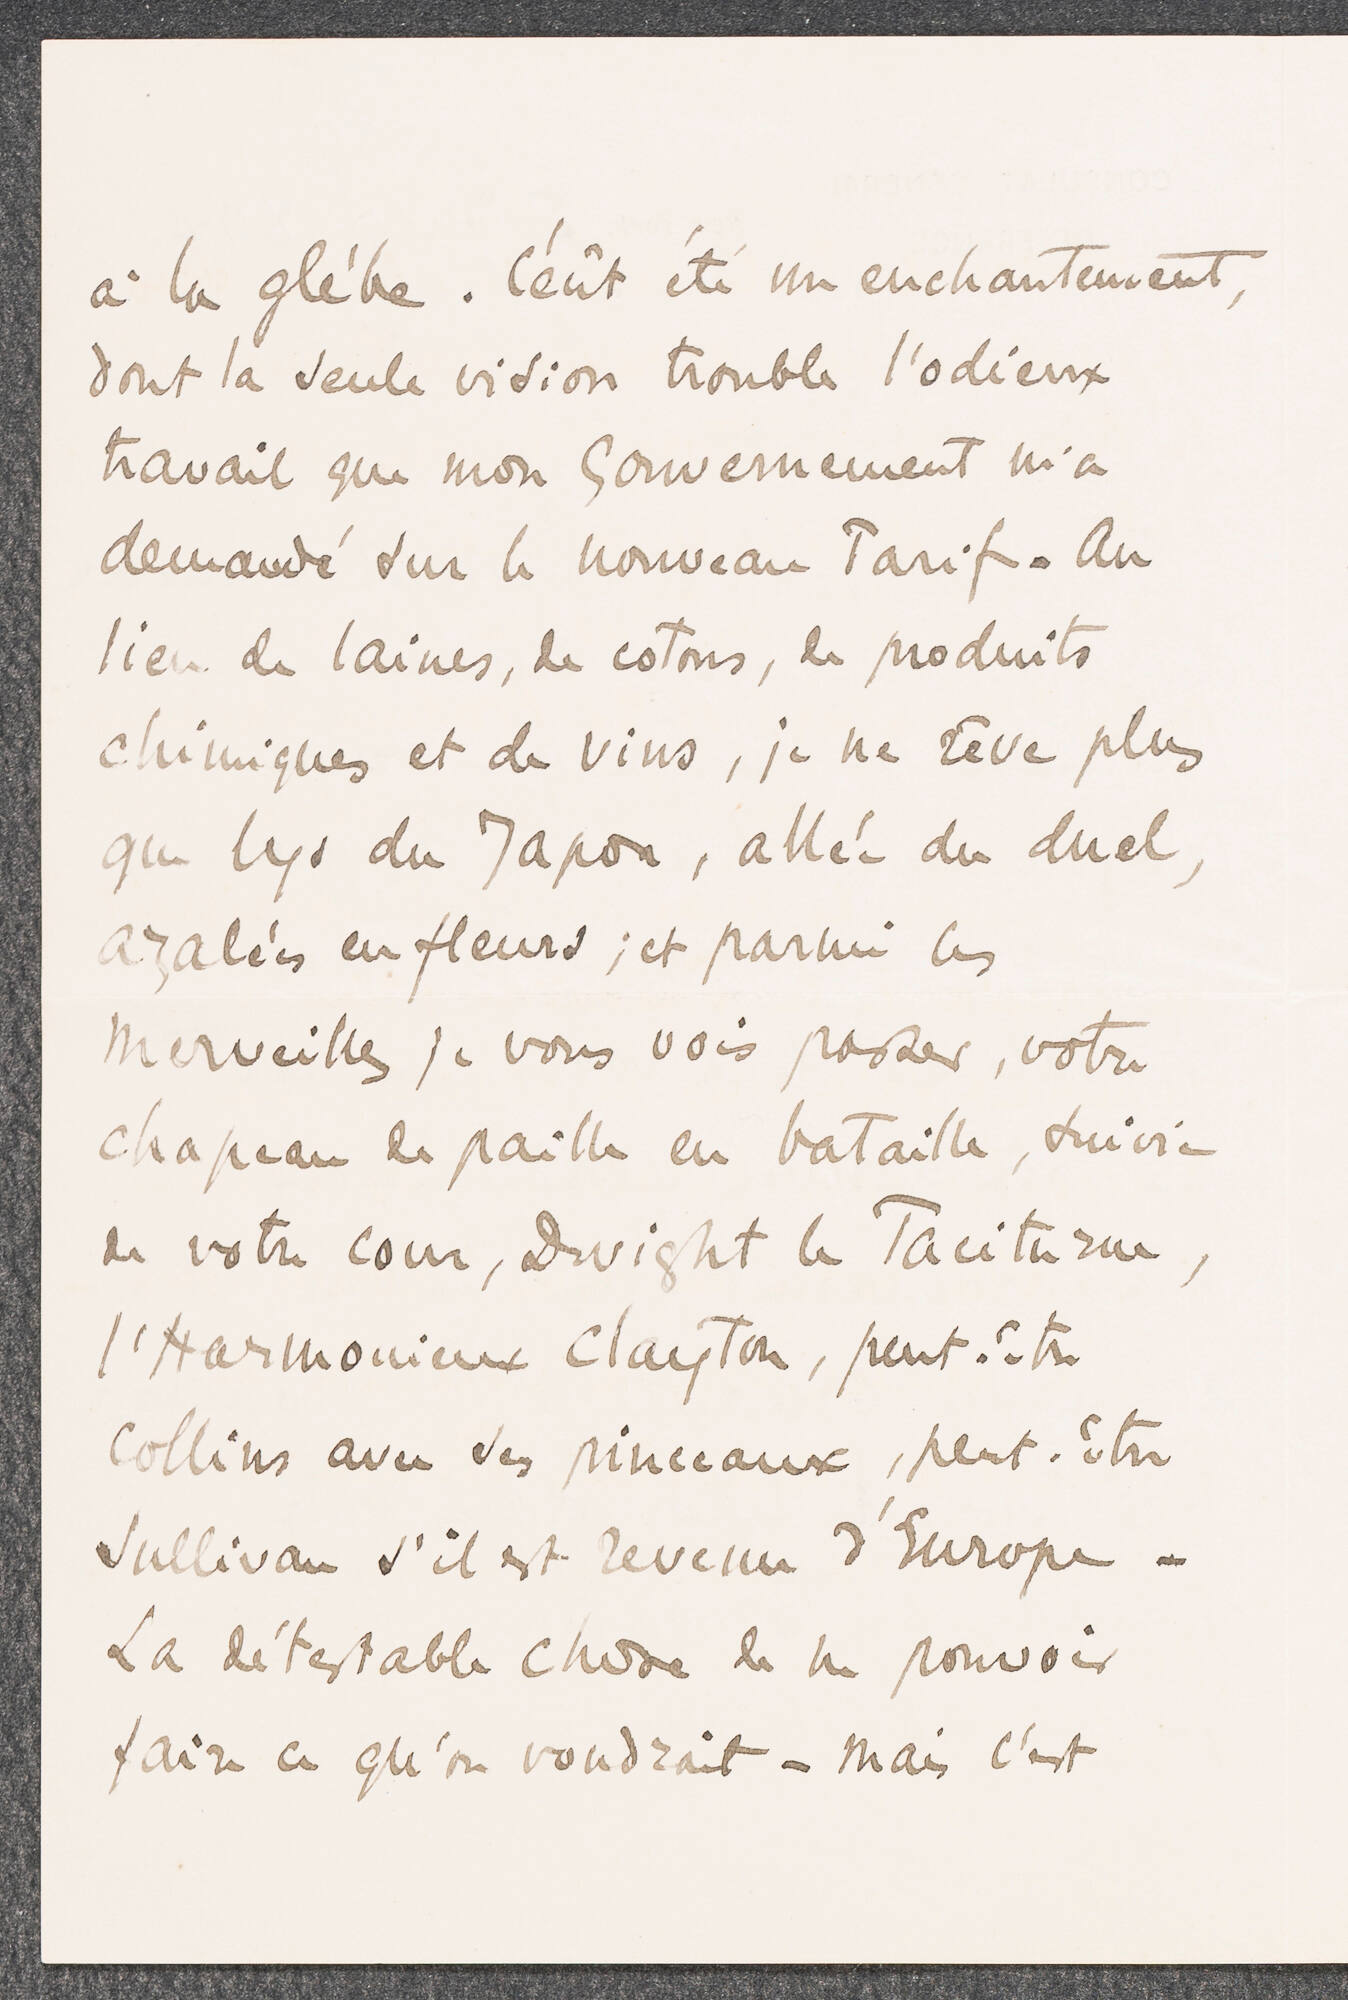 à la glèbe. C'eût été un enchantement,
dont la seule vision trouble l'odieux
travail que mon Gouvernement m'a
demandé sur le nouveau Tarif - Au
lieu de laines, de cotons, de produits
chimiques et de vins, je ne rêve plus
que lys du Japon, allée du duel,
azalées en fleurs ; et parmi les
merveilles je vous vois passer, votre
chapeau de paille en bataille, suivie
de votre cour, Dwight le Taciturne,
l'Harmonieux Clayton, peut-être
Collins avec ses pinceaux, peut-être
Sullivan s'il est revenu d'Europe -
La détestable chose de ne pouvoir
faire ce qu'on voudrait - mais c'est